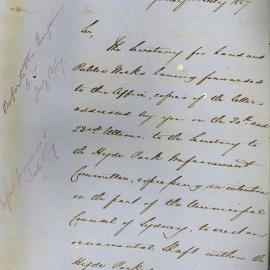 Sir,
The Secretary for Lands and
Public Works having forwarded
to this Office, copies of the letters
addressed by you on the 20th and
23rd Ultimo, to the Secretary to
the Hyde Park Improvement
Committee, expressing an intention
on the part of the Municipal
Council of Sydney, to erect an
ornamental Shaft within the
Hyde Park